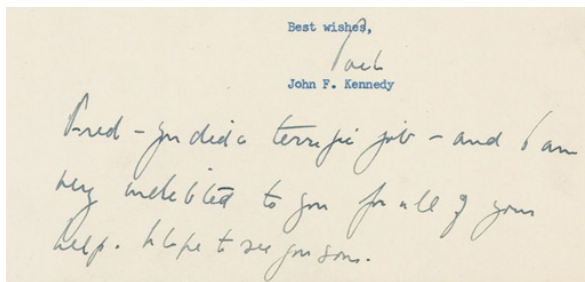 Best wishes,
Jack
John F. Kennedy
Fred - you did a terrific job - and I am
very indebted to you for all of your
help. Hope to see you soon.